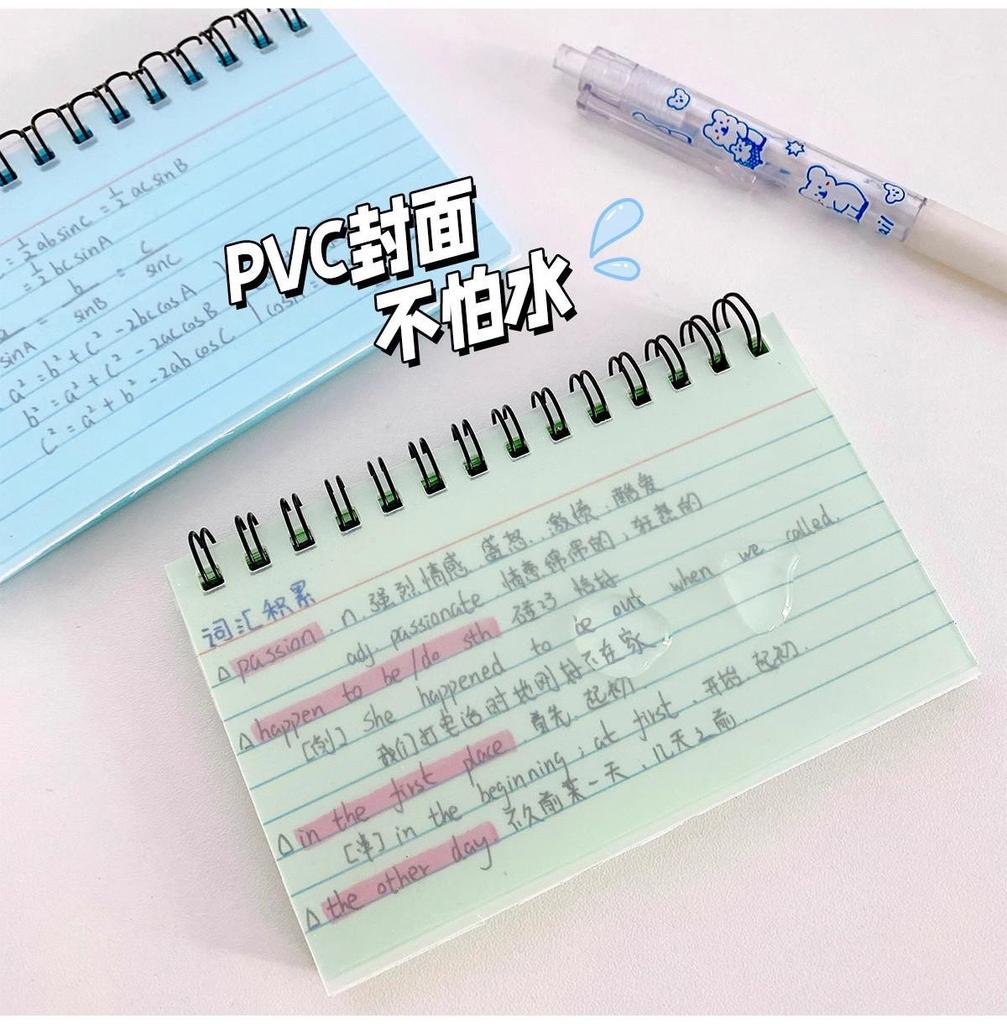 PVC封面
不怕水
= ½ab sinC = ½ac sinB
= ½bc sinA
sinA = b/sinB = c/sinC
a² = b² + c² - 2bc cosA
b² = a² + c² - 2ac cosB
c² = a² + b² - 2ab cosC
词汇积累
△passion. n. 强烈情感、盛怒、激愤、酷爱
adj. passionate. 情意绵绵的,狂热的
△happen to be/do sth 碰巧 恰好
[例] she happened to be out when we called.
我们打电话时她刚好不在家
△in the first place. 首先. 起初.
[串] in the beginning; at first. 开始. 起初.
△the other day. 不久前某一天. 几天之前.